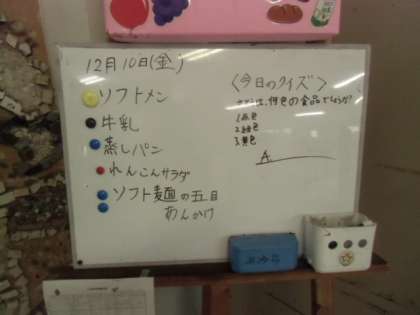 12月10日(金)
ソフトメン
牛乳
蒸しパン
れんこんサラダ
ソフト麺の五目
あんかけ
〈今日のクイズ〉
は、何色の食品でしょうか?
1.赤色
2.緑色
3.黄色
A.